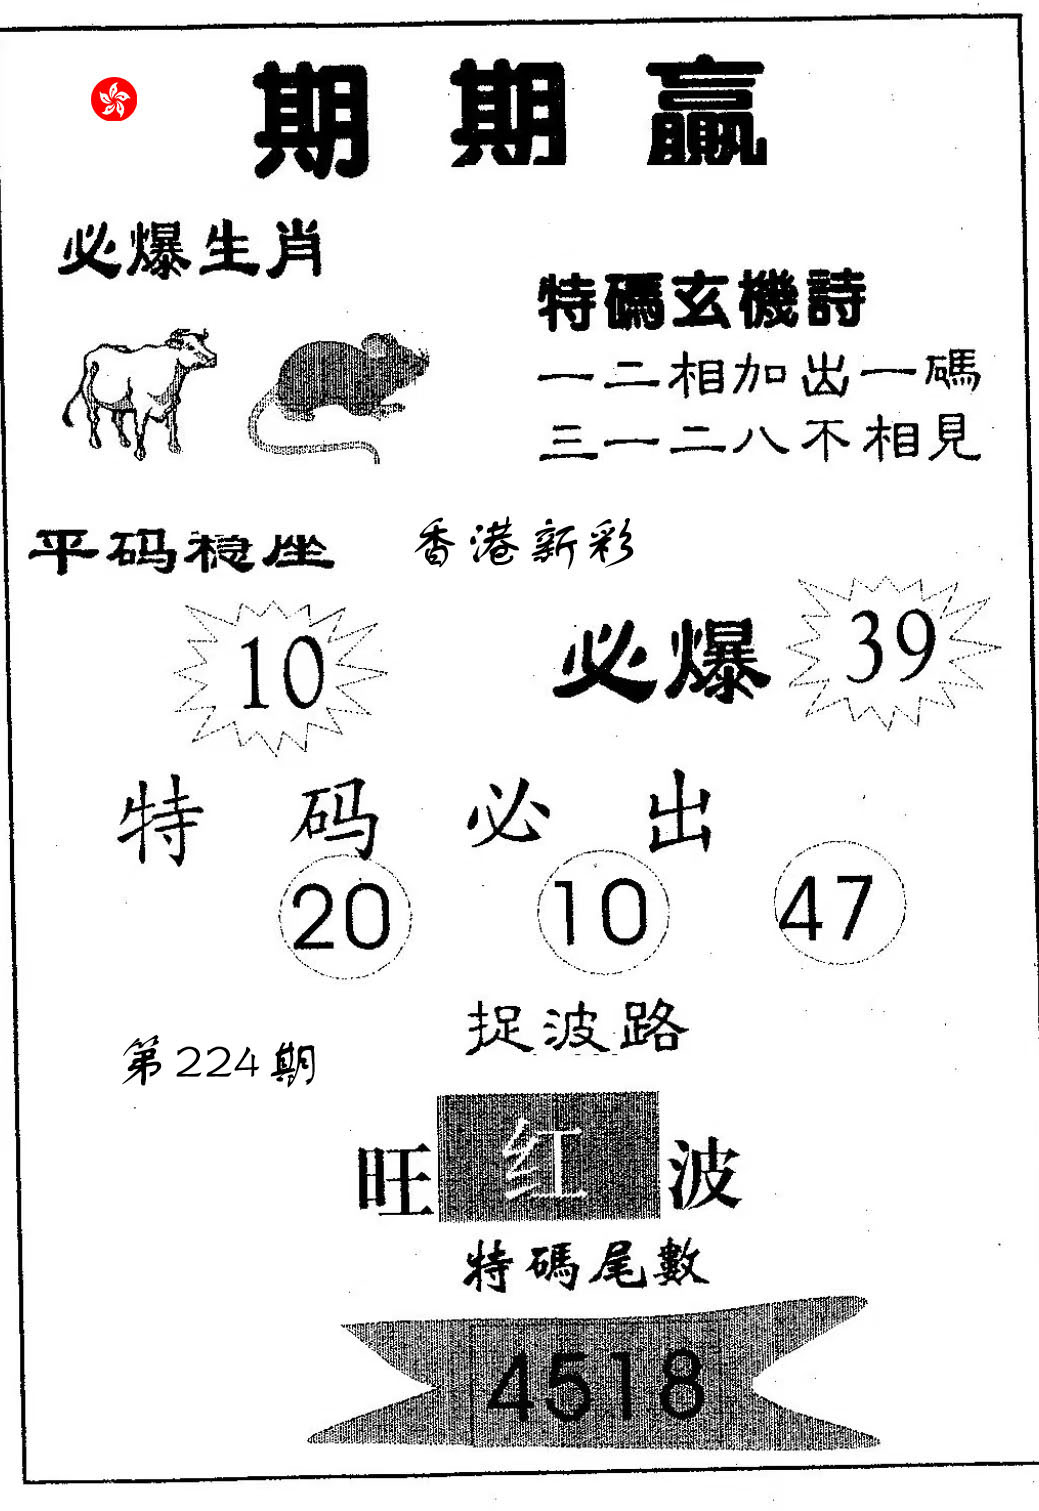 期期贏
必爆生肖
特碼玄機詩
一二相加出一碼
三一二八不相見
平码稳座
香港新彩
10
必爆
39
特码必出
20 10 47
捉波路
第224期
旺红波
特碼尾數
4518